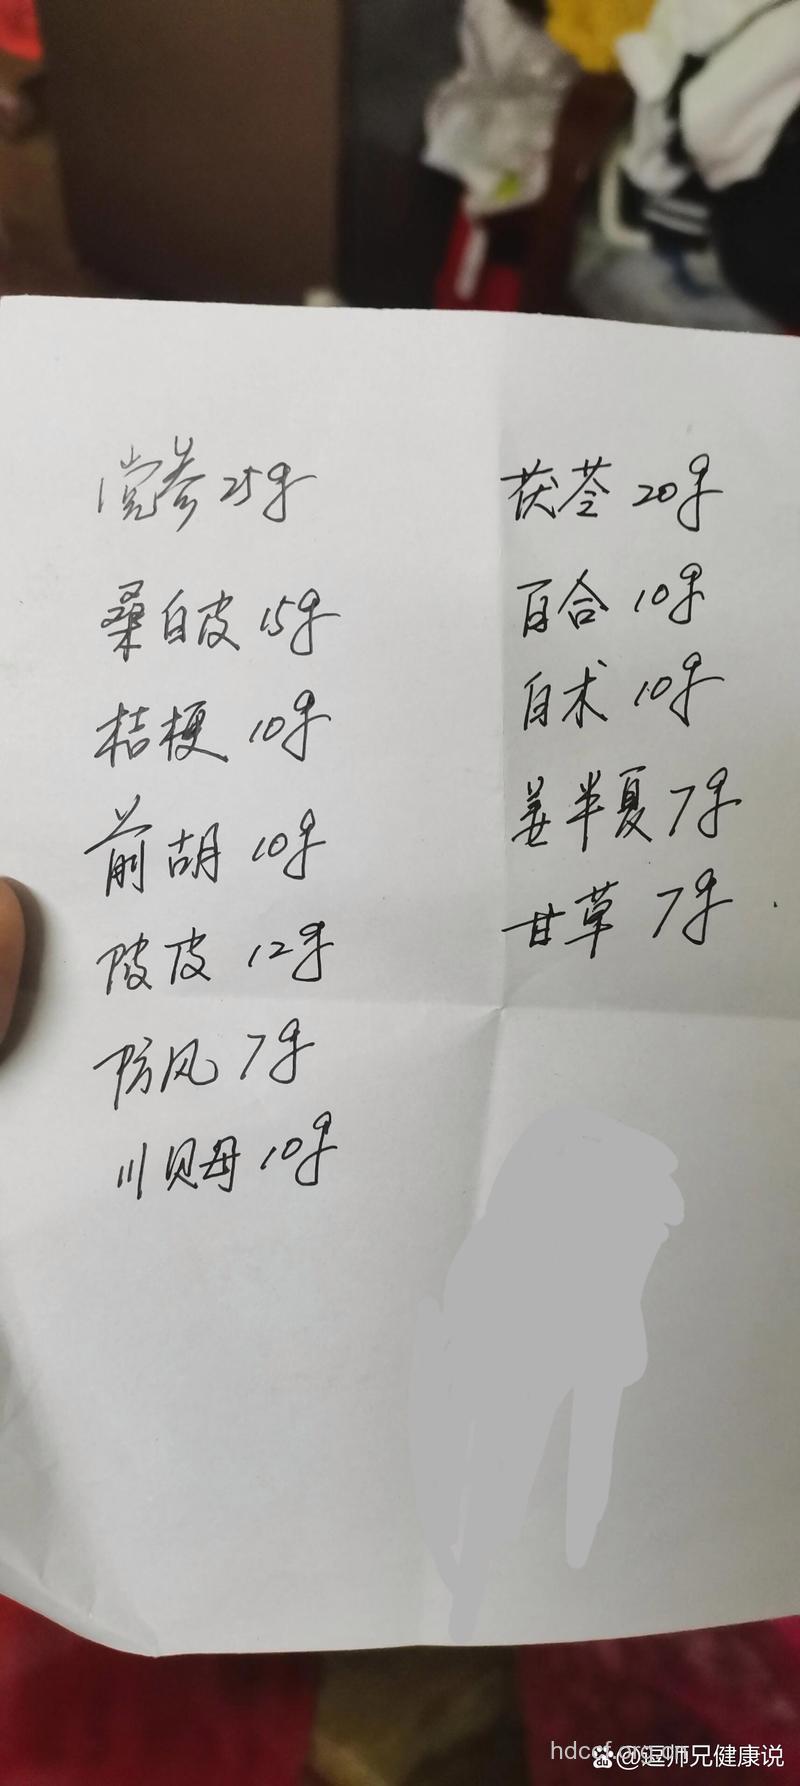 党参 25g
桑白皮 15g
桔梗 10g
前胡 10g
陂皮 12g
防风 7g
川贝母 10g
茯苓 20g
百合 10g
白术 10g
姜半夏 7g
甘草 7g
@逗师兄健康说